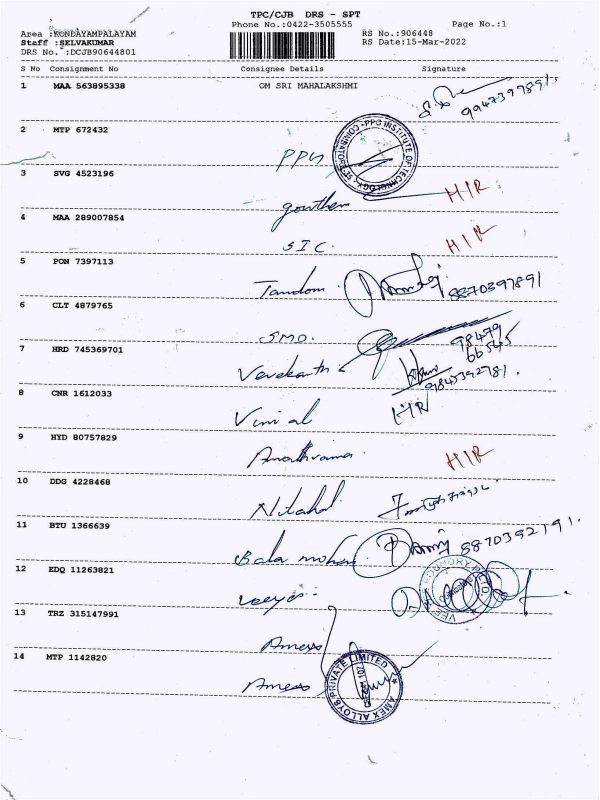 TPC/CJB DRS - SPT
Phone No.:0422-3505555
Page No.:1
Area :KONDAYAMPALAYAM
RS No.:906448
Staff :SELVAKUMAR
RS Date:15-Mar-2022
DRS No.:DCJB90644801
S No Consignment No Consignee Details Signature
1 MAA 563895338 OM SRI MAHALAKSHMI
9947397891.
2 MTP 672432
PPG
PPG INSTITUTE OF TECHNOLOGY
3 SVG 4523196
gowthem
HIR
4 MAA 289007854
SIC.
HIR
5 PON 7397113
Tandom.
8870397891
6 CLT 4879765
SMO.
98479
66545
7 HRD 745369701
9843392781.
8 CNR 1612033
Vimal
HR
9 HYD 80757829
HIR
10 DDG 4228468
11 BTU 1366639
Bala mohan.
8870392191.
12 EDQ 11263821
FOUNDRY
13 TRZ 315147991
Amexs
14 MTP 1142820
Amexs
AMEX ALLOYS PRIVATE LIMITED